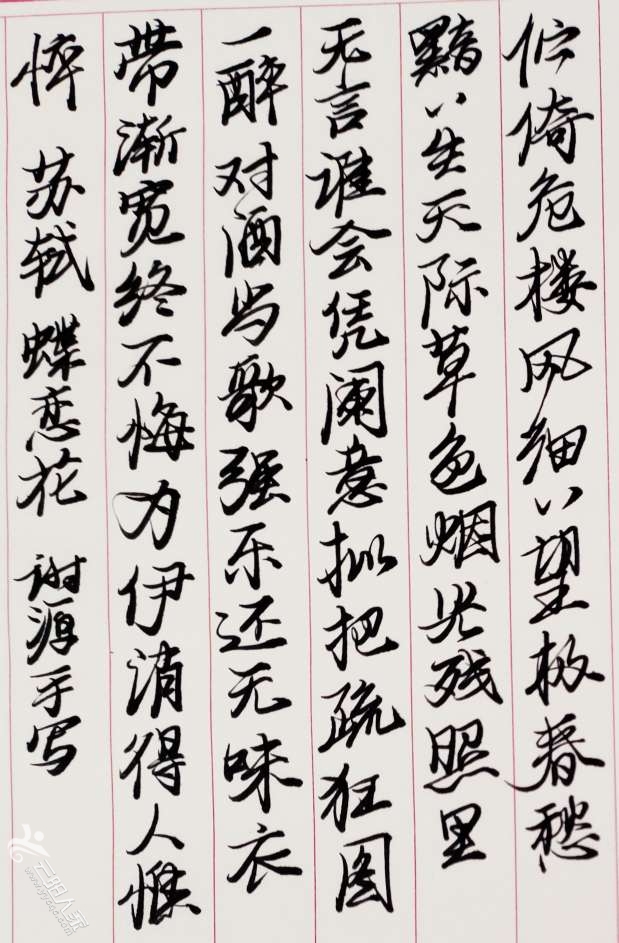 伫倚危楼风细〻望极春愁
黯〻生天际草色烟光残照里
无言谁会凭阑意拟把疏狂图
一醉对酒当歌强乐还无味衣
带渐宽终不悔为伊消得人憔
悴 苏轼 蝶恋花 谢源手写